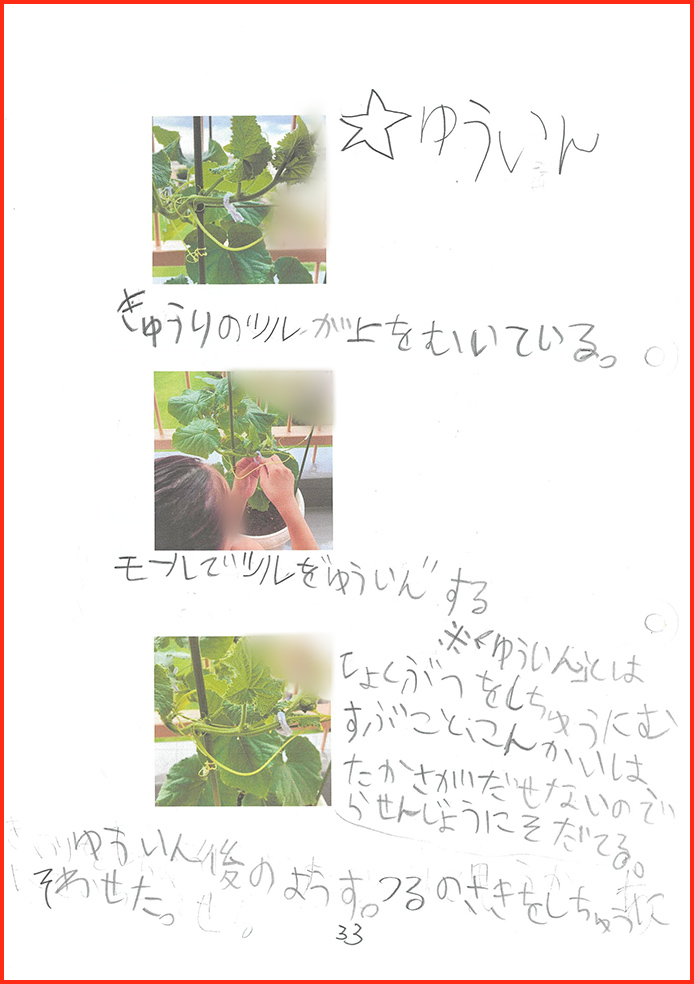 ☆ゆういん
きゅうりのツルが上をむいている。
モールでツルを"ゆういん"する
※「ゆういん」とは
しょくぶつをしちゅうにむ
すぶこと、こんかいは
たかさがだせないので
らせんじょうにそだてる。
ゆういん後のようす。つるのさきをしちゅうに
そわせた。
33